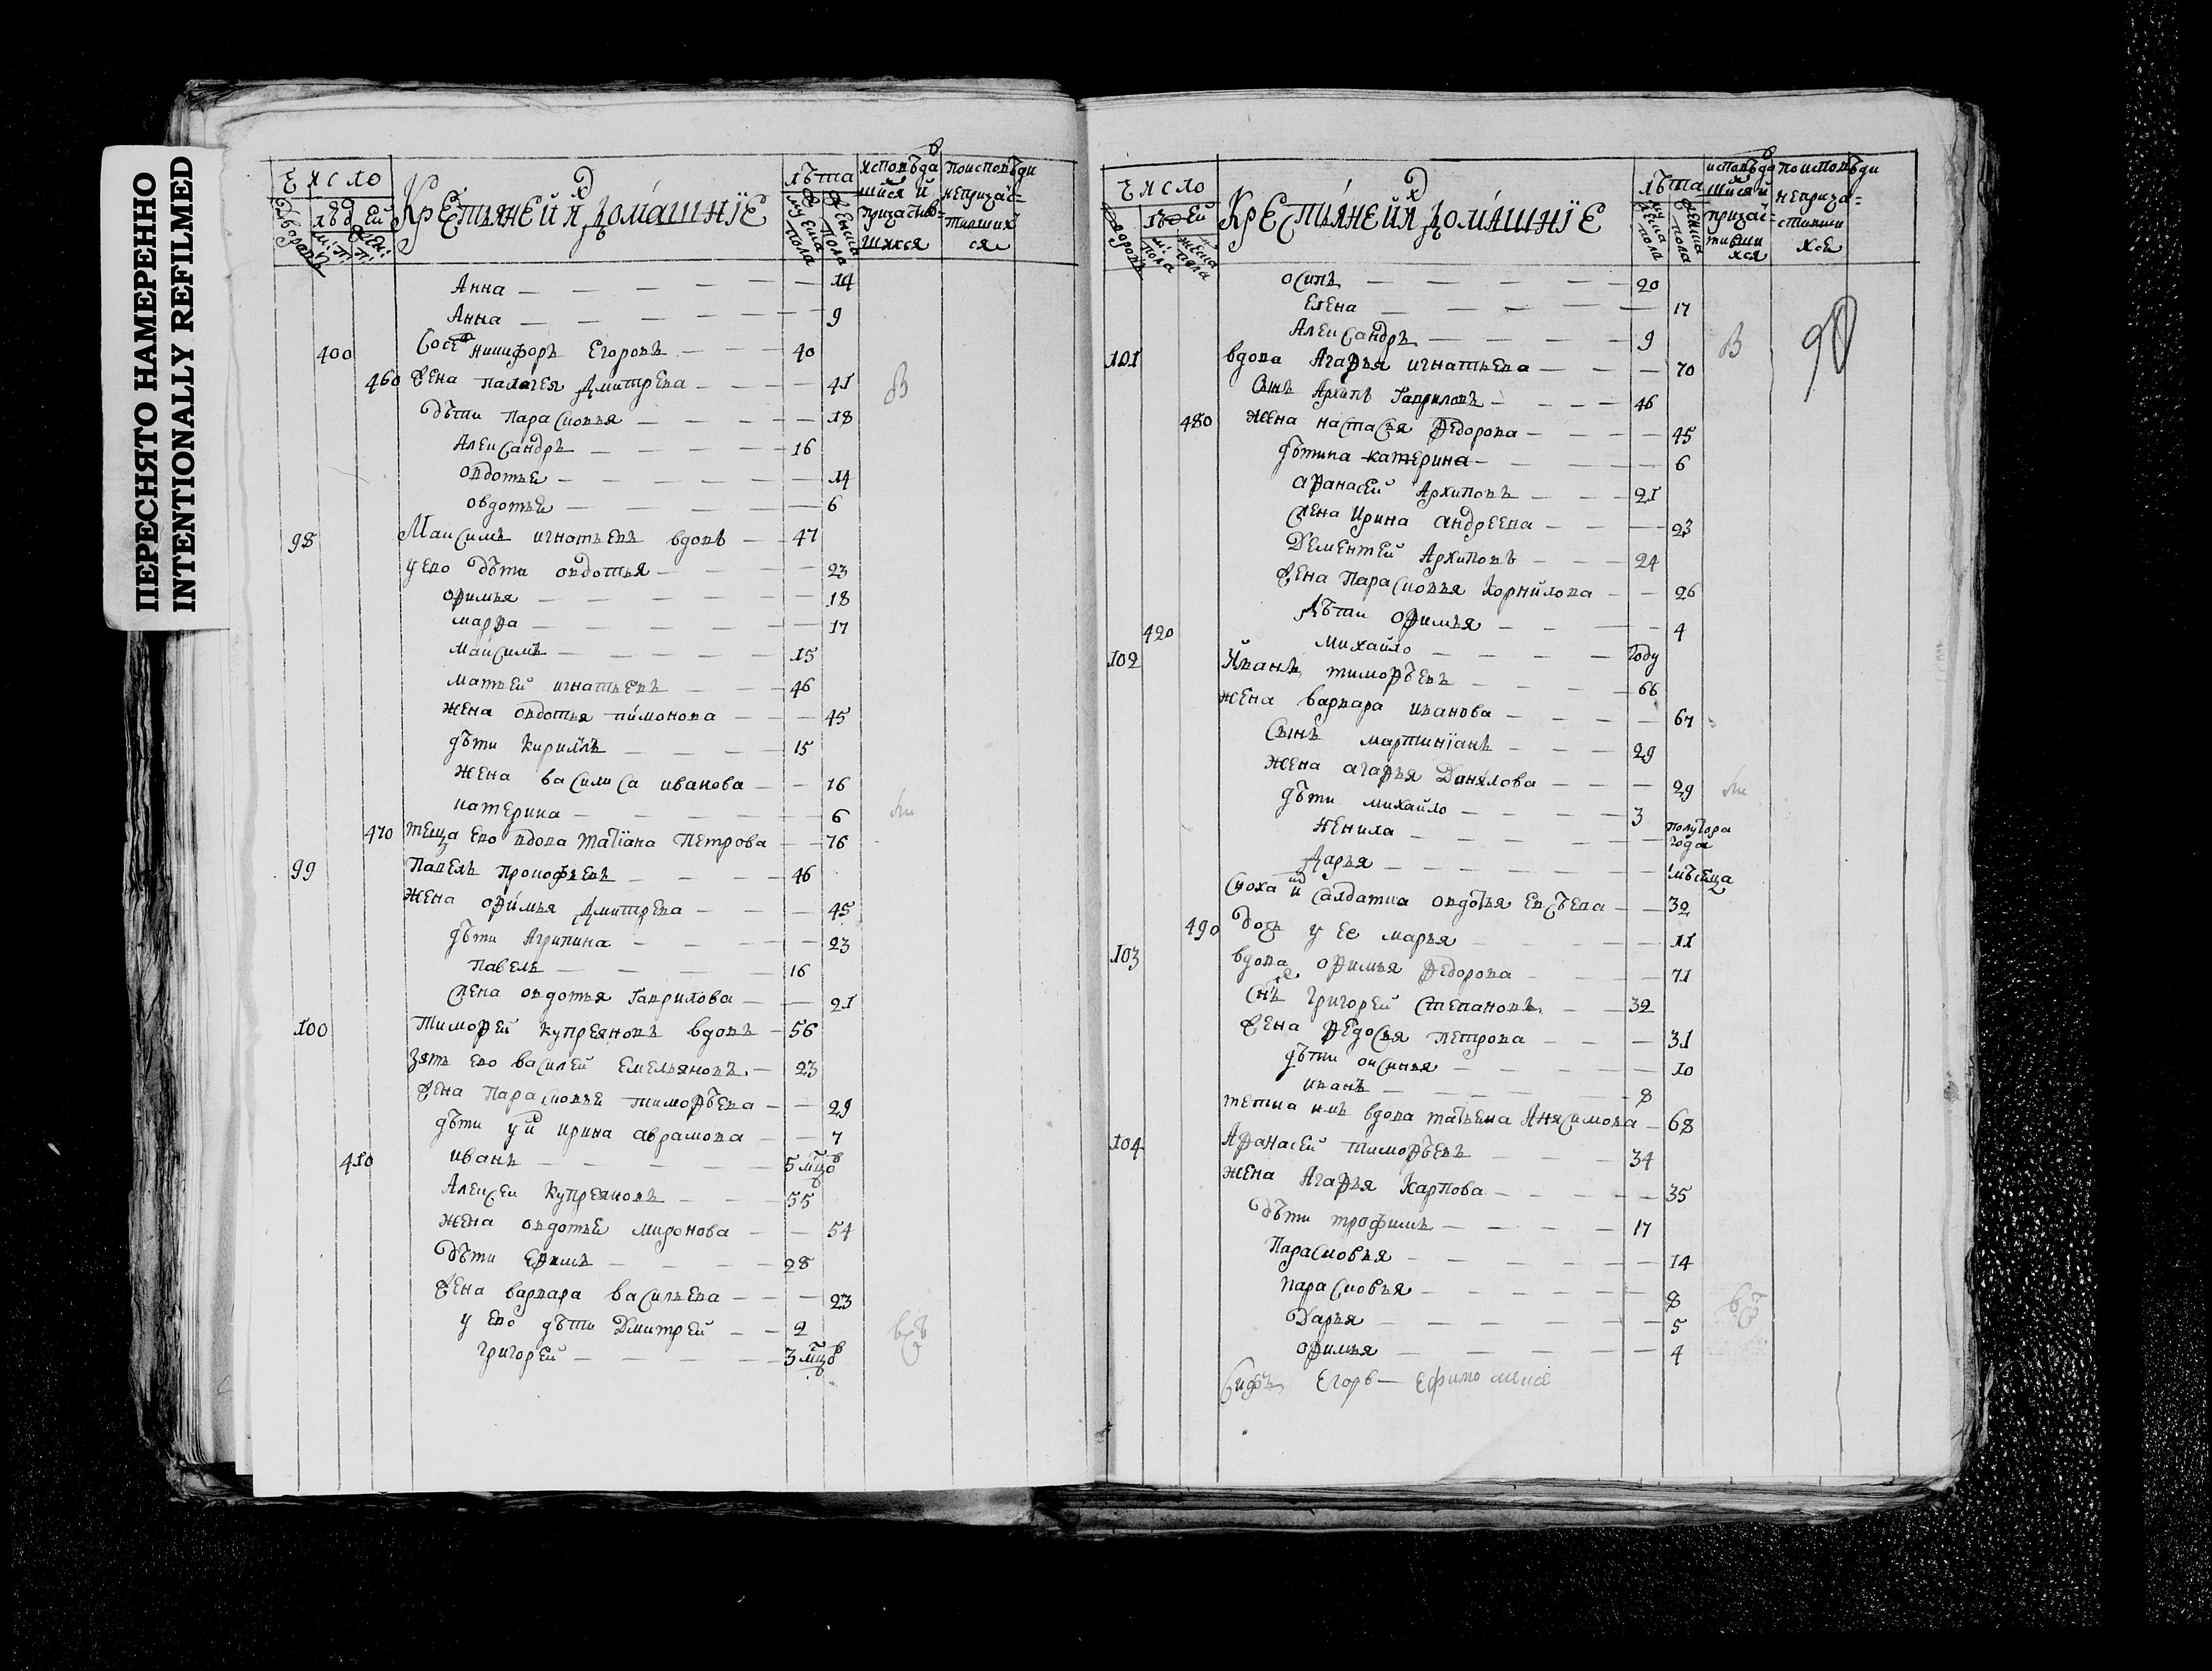 ПЕРЕСНЯТО НАМЕРЕННО
INTENTIONALLY REFILMED
Число
людей
Крестьяне и ихъ домашнїе
лѣта
исповѣдавшися и причастившихся
по исповѣди не причастившихся
Анна — 14
Анна — 9
400 Никифоръ Егоровъ — 40
460 жена палагея Дмитрева — 41
дѣти парасковья — 18
Александръ — 16
овдотья — 14
овдотья — 6
98 Максимъ игнатьевъ вдовъ — 47
у ево дѣти овдотья — 23
офимья — 18
марфа — 17
максимъ — 15
матвей игнатьевъ — 46
жена овдотья пимонова — 45
дѣти кирилъ — 15
жена василиса иванова — 16
катерина — 6
470 теща ево вдова татїана Петрова — 76
99 Павелъ прокофьевъ — 46
жена офимья Дмитрева — 45
дѣти Агрипина — 23
павелъ — 16
жена овдотья гаврилова — 21
100 Тимофей купреяновъ вдовъ — 56
зять ево василей емельяновъ — 23
жена парасковья тимофѣева — 29
дѣти у ий ирина аврамова — 7
410 иванъ — 5 мцовъ
Алексеи купреяновъ — 55
жена овдотья миронова — 54
дѣти ефимъ — 28
жена варвара васильева — 23
у ево дѣти Дмитрей — 2
григорей — 3 мцовъ
Число
людей
Крестьяне и ихъ домашнїе
лѣта
исповѣдавшися и причастившихся
по исповѣди не причастившихся
осипъ — 20
елена — 17
Александръ — 9
В 90
101 вдова Агафья игнатьева — 70
сынъ Архипъ гавриловъ — 46
480 жена настасья федорова — 45
дѣти катерина — 6
афанасей Архиповъ — 21
жена ирина андреева — 23
Дементей Архиповъ — 24
жена парасковья корнилова — 26
дѣти офимья — 4
420 михайло — году
102 иванъ тимофѣевъ — 66
жена варвара иванова — 67
сынъ мартинїанъ — 29
жена агафья Данилова — 29
дѣти михайло — 3
ненила — полутора года
Дарья — мѣсяца
сноха ихъ салдатка овдотья евсѣева — 32
490 дочь у ее марья — 11
103 вдова офимья федорова — 71
снъ григорей степановъ — 32
жена федосья петрова — 31
дѣти оксинья — 10
иванъ — 8
тетка имъ вдова татьяна Анисимова — 68
104 Афанасей тимофѣевъ — 34
жена Агафья карпова — 35
дѣти трофимъ — 17
парасковья — 14
парасковья — 8
Дарья — 5
офимья — 4
Егоръ —